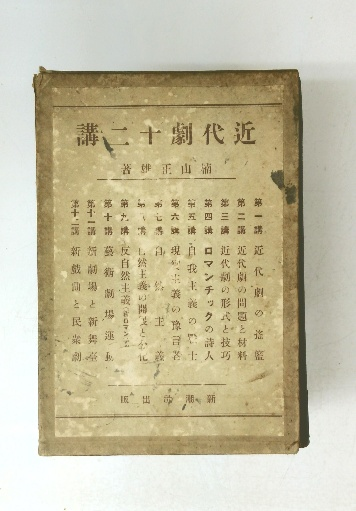 近代劇十二講
楠山正雄著
第一講 近代劇の進路
第二講 近代劇の問題と材料
第三講 近代劇の形式と技巧
第四講 ロマンチックの詩人
第五講 自我主義の戰士
第六講 現實主義の豫言者
第七講 自然主義
第八講 自然主義の開展と分化
第九講 反自然主義
第十講 藝術劇場運動
第十一講 新劇場と新舞臺
第十二講 新戯曲と民衆劇
新潮社出版